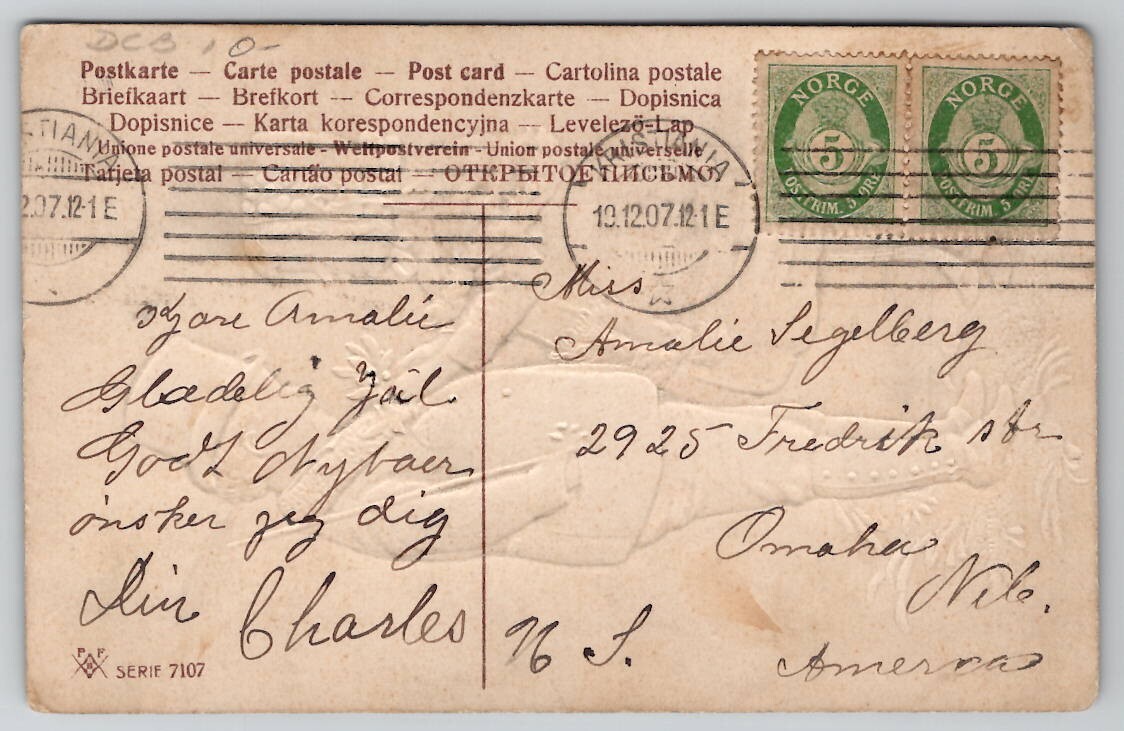 DCB 10-
Postkarte — Carte postale — Post card — Cartolina postale
Briefkaart — Brefkort — Correspondenzkarte — Dopisnica
Dopisnice — Karta korespondencyjna — Levelező-Lap
Unione postale universale - Weltpostverein - Union postale universelle
Tarjeta postal — Cartão postal — ОТКРЫТОЕ ПИСЬМО.
TIANIA
2.07.12-1 E
KRISTIANIA
19.12.07.12-1 E
NORGE
5
POSTFRIM. 5 ØRE
NORGE
5
POSTFRIM. 5 ØRE
Kjære Amalie
Glædelig Jul
Godt Nytaer
ønsker jeg dig
Din Charles
Miss
Amalie Segelberg
2925 Fredrik str
Omaha
Neb.
N S.
America
P F B
SERIE 7107